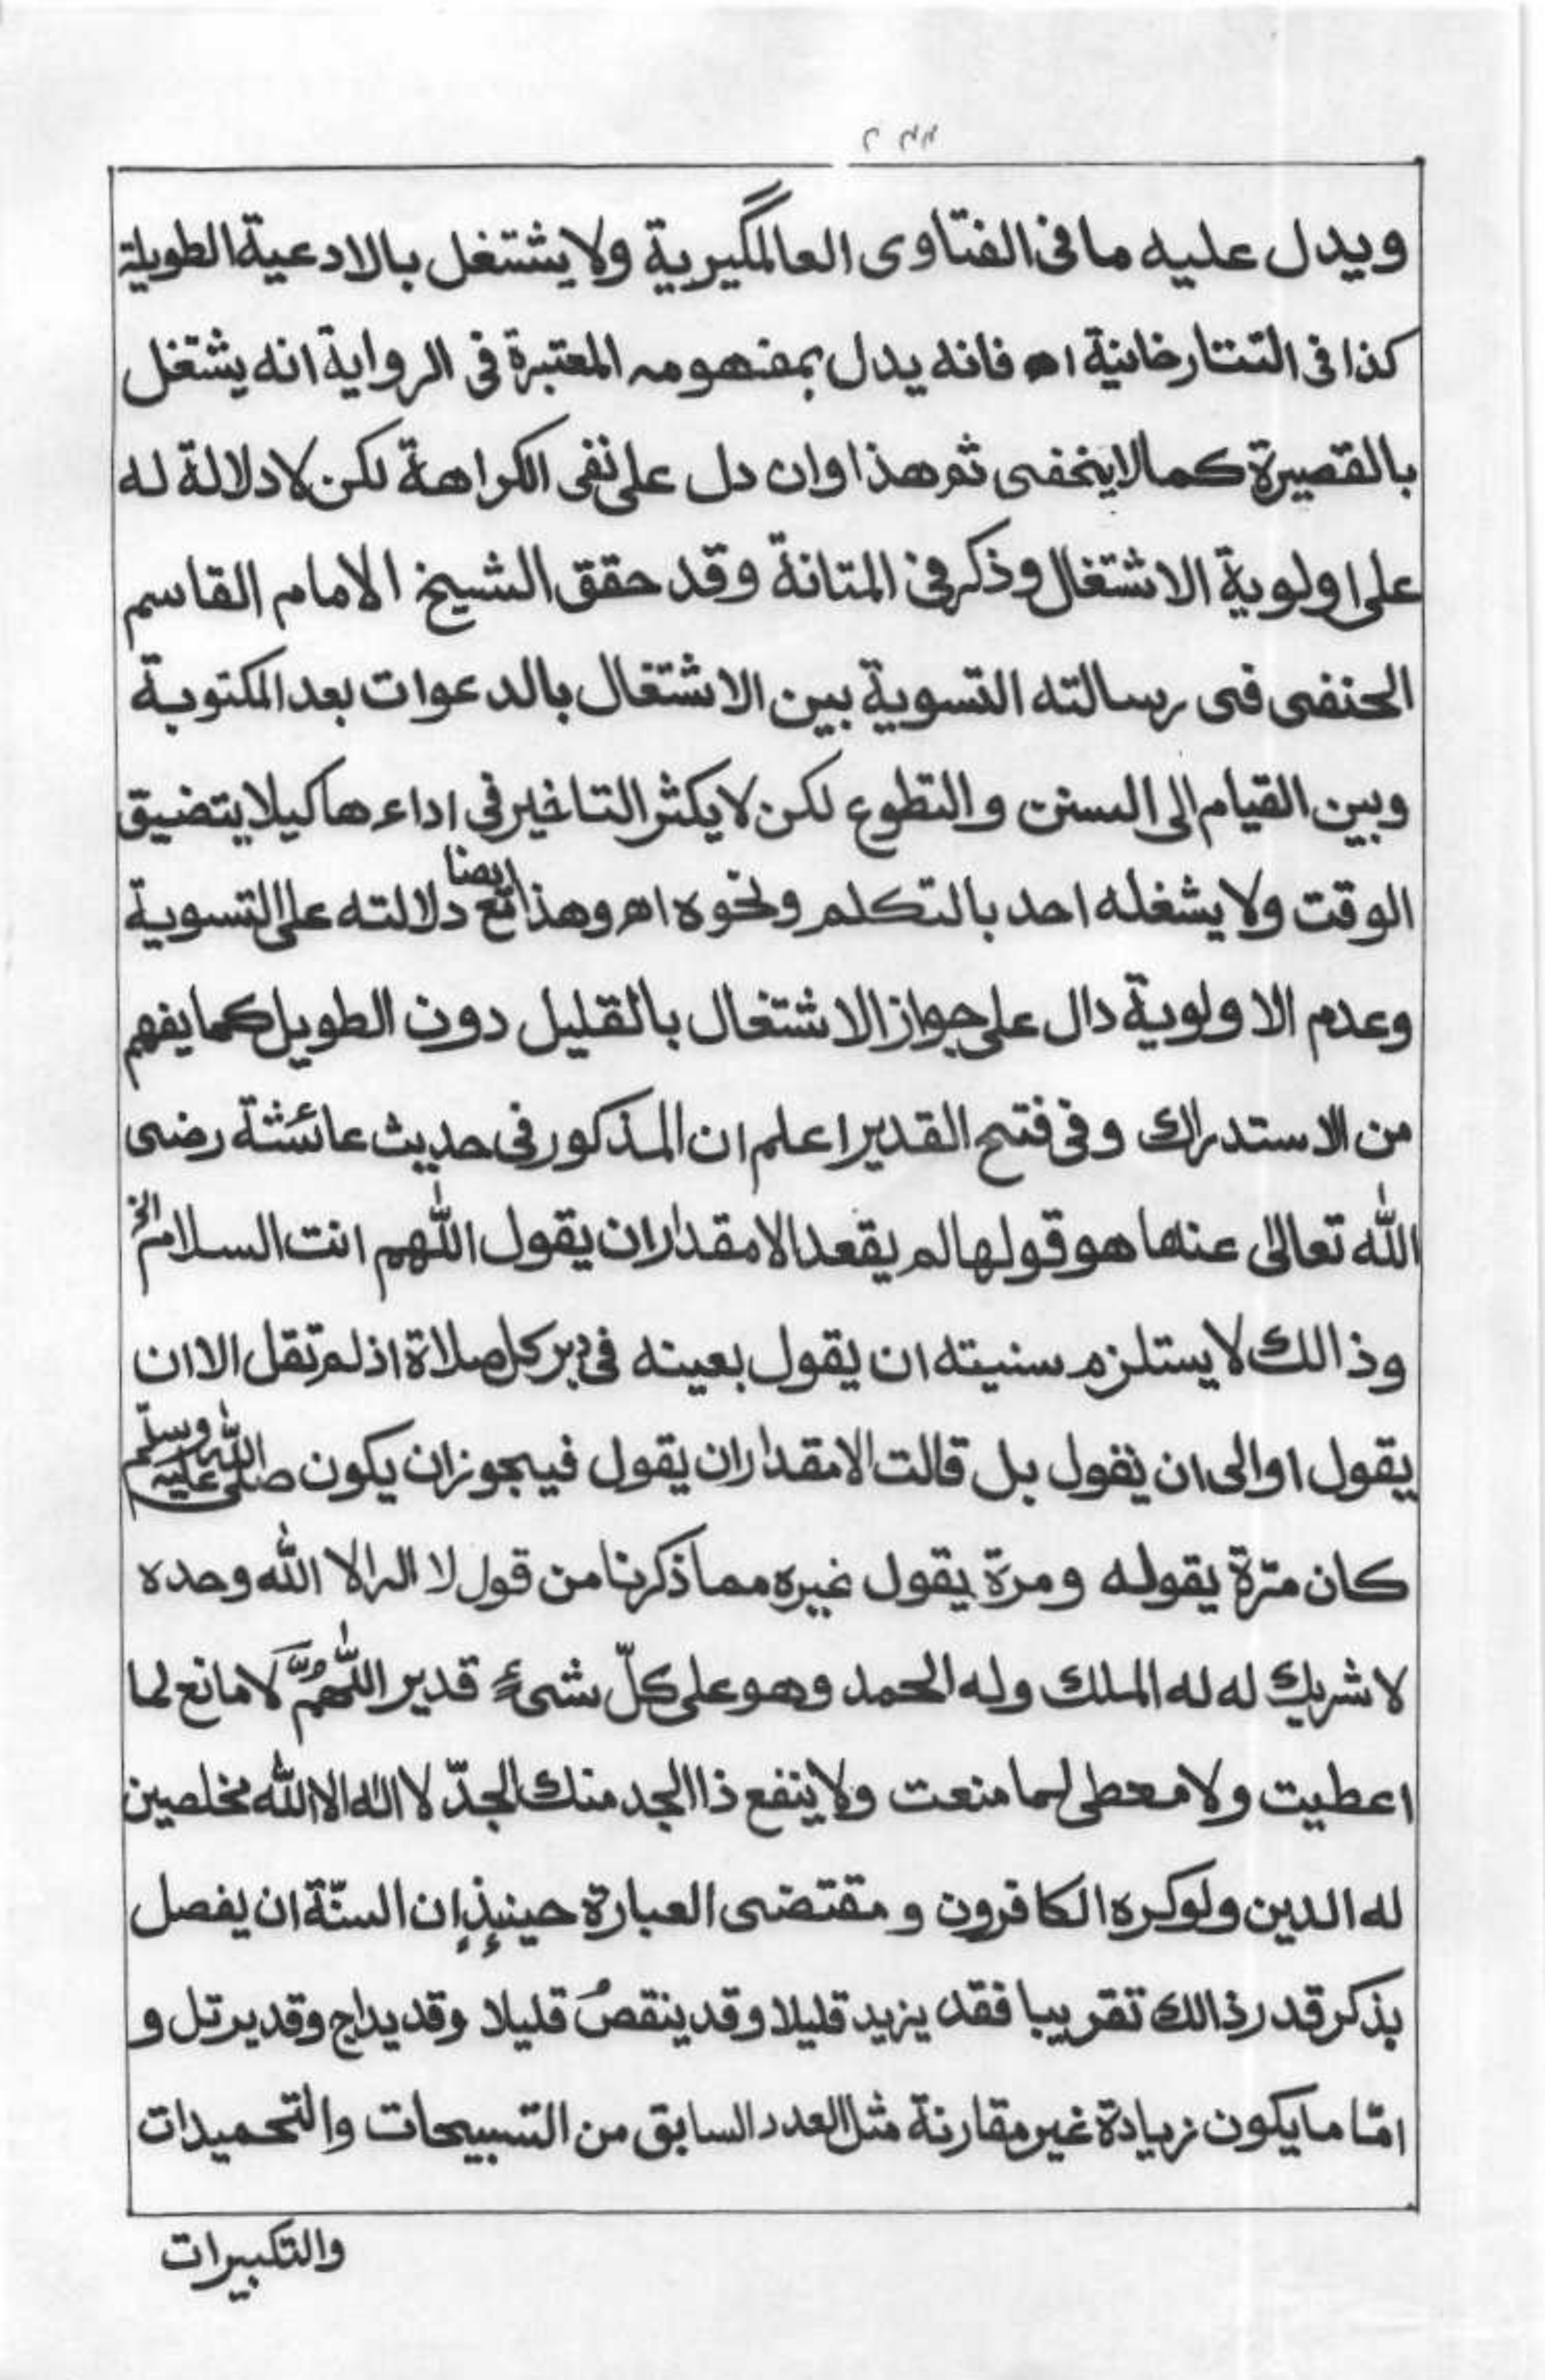 ويدل عليه مافى الفتاوى العالمگيرية ولايشتغل بالادعية الطويلة
كذا فى التتارخانية اه فانه يدل بمفهومه المعتبرة فى الرواية انه يشتغل
بالقصيرة كما لاينخفى ثم هذا وان دل على نفى الكراهة لكن لادلالة له
على اولوية الاشتغال وذكر فى المتانة وقد حقق الشيخ الامام القاسم
الحنفى فى رسالته التسوية بين الاشتغال بالدعوات بعد المكتوبة
وبين القيام الى السنن والتطوع لكن لايكثر التاخير فى اداءها كيلا يتضيق
الوقت ولا يشغله احد بالتكلم ونحوه اه وهذا ايضا مع دلالته على التسوية
وعدم الاولوية دال على جواز الاشتغال بالقليل دون الطويل كما يفهم
من الاستدراك وفى فتح القدير اعلم ان المذكور فى حديث عائشة رضى
الله تعالى عنها هو قولها لم يقعد الامقدار ان يقول اللهم انت السلام الخ
وذالك لايستلزم سنيته ان يقول بعينه فى دبر كل صلاة اذ لم تقل الا ان
يقول اوالى ان يقول بل قالت الامقدار ان يقول فيجوز ان يكون صلى الله عليه وسلم
كان مرّة يقوله ومرة يقول غيره مما ذكرنا من قول لا اله الا الله وحده
لاشريك له له الملك وله الحمد وهو على كلّ شىءٍ قدير اللّٰهُمَّ لَامانع لما
اعطيت ولامعطى لما منعت ولاينفع ذاالجد منك الجدّ لا اله الا الله مخلصين
له الدين ولوكره الكافرون ومقتضى العبارة حينئذٍ ان السنّة ان يفصل
بذكر قدر ذالك تقريبا فقد يزيد قليلا وقد ينقصُ قليلا وقد يداج وقد يرتل و
امّا مايكون زيادة غير مقارنة مثل العدد السابق من التسبيحات والتحميدات
والتكبيرات